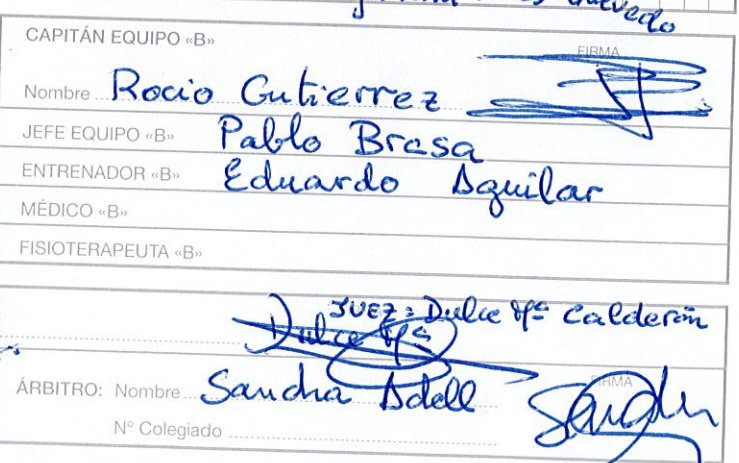 Quevedo
CAPITÁN EQUIPO «B»
FIRMA
Nombre Rocio Gutierrez
JEFE EQUIPO «B» Pablo Brasa
ENTRENADOR «B» Eduardo Aguilar
MÉDICO «B»
FISIOTERAPEUTA «B»
JUEZ: Dulce Mª Calderón
Dulce Mª
FIRMA
ÁRBITRO: Nombre Sandra Adell
Nº Colegiado